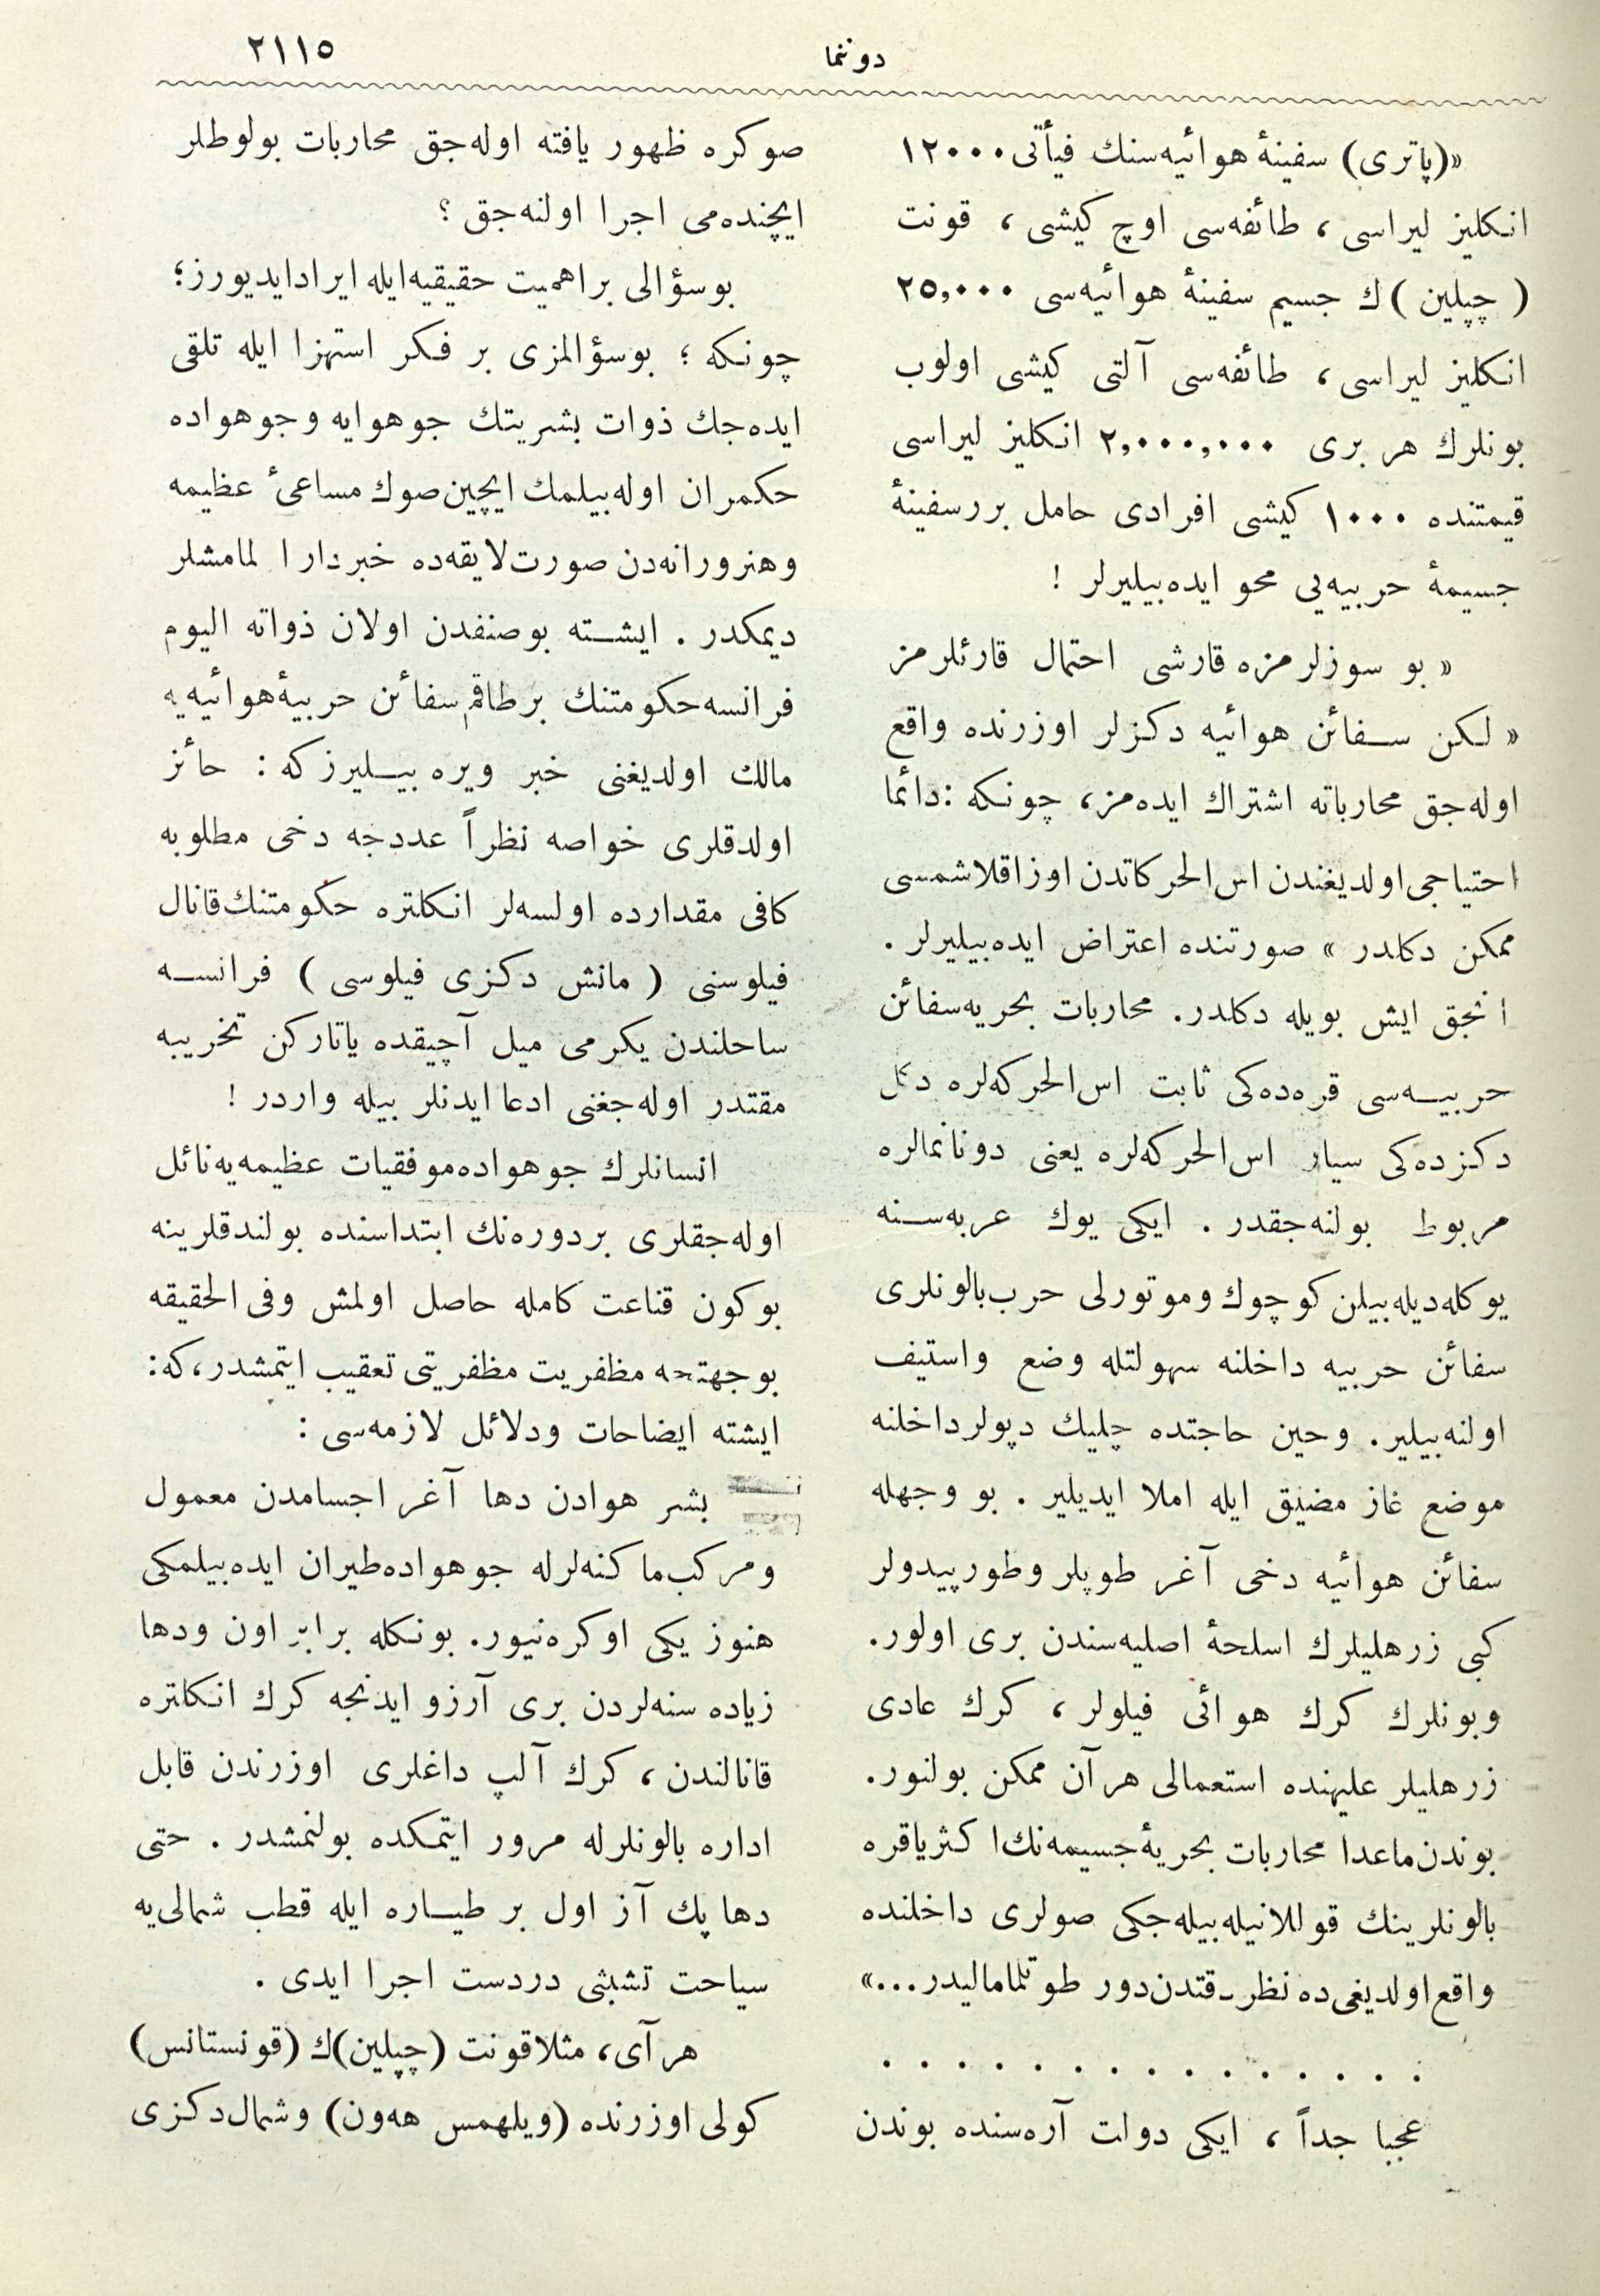 ٢١١٥
دوننما
«(پاتری) سفينۀ هوائيه‌سنك فيأتی ١٢٠٠٠
انكليز ليراسی ، طائفه‌سی اوچ كيشی ، قونت
( چپلين )ك جسيم سفينۀ هوائيه‌سی ٢٥,٠٠٠
انكليز ليراسی ، طائفه‌سی آلتی كيشی اولوب
بونلرك هر بری ٢,٠٠٠,٠٠٠ انكليز ليراسی
قيمتنده ١٠٠٠ كيشی افرادی حامل بررسفينۀ
جسيمۀ حربيه‌يی محو ايده‌بيليرلر !
« بو سوزلرمزه قارشی احتمال قارئلرمز
« لكن سفائن هوائيه دكزلر اوزرنده واقع
اوله‌جق محارباته اشتراك ايده‌مز، چونكه : دائما
احتياجی اولديغندن اس‌الحركاتدن اوزاقلاشمسی
ممكن دكلدر » صورتنده اعتراض ايده‌بيليرلر .
انجق ايش بويله دكلدر. محاربات بحريه سفائن
حربيه‌سی قره‌ده‌كی ثابت اس‌الحركه‌لره دكل
دكزده‌كی سيار اس‌الحركه‌لره يعنی دونانمالره
مربوط بولنه‌جقدر . ايكی يوك عربه‌سنه
يوكله‌ديله‌بيلن كوچوك وموتورلی حرب بالونلری
سفائن حربيه داخلنه سهولتله وضع واستيف
اولنه‌بيلير. وحين حاجتده چليك دپولر داخلنه
موضع غاز مضيق ايله املا ايديلير . بو وجهله
سفائن هوائيه دخی آغر طوپلر وطورپيدولر
كبی زرهليلرك اسلحۀ اصليه‌سندن بری اولور.
وبونلرك كرك هوائی فيلولر ، كرك عادی
زرهليلر عليهنده استعمالی هر آن ممكن بولنور.
بوندن ماعدا محاربات بحريۀ جسيمه‌نك اكثريا قره
بالونلرينك قوللانيله‌بيله‌جكی صولری داخلنده
واقع اولديغی‌ده نظر دقتدن دور طوتلماماليدر...»
. . . . . . . . . . . . . . .
عجبا جداً ، ايكی دولت آره‌سنده بوندن
صوكره ظهور يافته اوله‌جق محاربات بولوطلر
ايچنده‌می اجرا اولنه‌جق ؟
بوسؤالی بر اهميت حقيقيه‌ايله ايراد ايديورز؛
چونكه ؛ بوسؤالمزی بر فكر استهزا ايله تلقی
ايده‌جك ذوات بشريتك جو هوايه وجوهواده
حكمران اوله‌بيلمك ايچين صوك مساعیٔ عظيمه
وهنرورانه‌دن صورت لايقه‌ده خبردار المامشلر
ديمكدر . ايشته بوصنفدن اولان ذواته اليوم
فرانسه حكومتنك برطاقم سفائن حربيۀ هوائيه‌يه
مالك اولديغنی خبر ويره بيليرزكه : حائز
اولدقلری خواصه نظراً عددجه دخی مطلوبه
كافی مقدارده اولسه‌لر انكلتره حكومتنك قانال
فيلوسنی ( مانش دكزی فيلوسی ) فرانسه
ساحلندن يكرمی ميل آچيقده ياتاركن تخريبه
مقتدر اوله‌جغنی ادعا ايدنلر بيله واردر !
انسانلرك جوهواده موفقيات عظيمه‌يه نائل
اوله‌جقلری بردوره‌نك ابتداسنده بولندقلرينه
بوكون قناعت كامله حاصل اولمش وفی الحقيقه
بوجهتجه مظفريت مظفريتی تعقيب ايتمشدر، كه:
ايشته ايضاحات ودلائل لازمه‌سی :
بشر هوادن دها آغر اجسامدن معمول
ومركب ماكنه‌لرله جوهواده طيران ايده‌بيلمكی
هنوز يكی اوكره‌نيور. بونكله برابر اون ودها
زياده سنه‌لردن بری آرزو ايدنجه كرك انكلتره
قانالندن ، كرك آلپ داغلری اوزرندن قابل
اداره بالونلرله مرور ايتمكده بولنمشدر . حتی
دها پك آز اول بر طياره ايله قطب شمالی‌يه
سياحت تشبثی دردست اجرا ايدی .
هر آی، مثلا قونت (چپلين)ك (قونستانس)
كولی اوزرنده (ويلهمس هه‌ون) وشمال دكزی